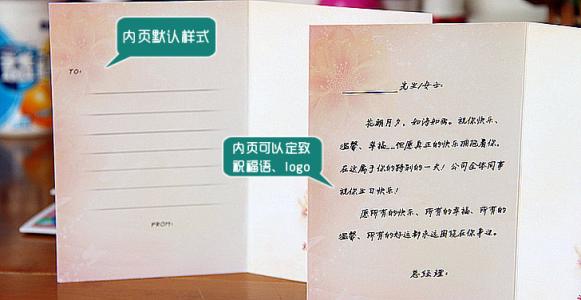 内页默认样式
TO:
FROM:
内页可以定致
祝福语、logo
先生/女士:
花朝月夕，如诗如画。祝你快乐、
温馨、幸福…但愿真正的快乐拥抱着你，
在这属于你的特别的一天！公司全体同事
祝你生日快乐！
愿所有的快乐、所有的幸福、所有的
温馨、所有的好运都永远围绕在你身边。
总经理：